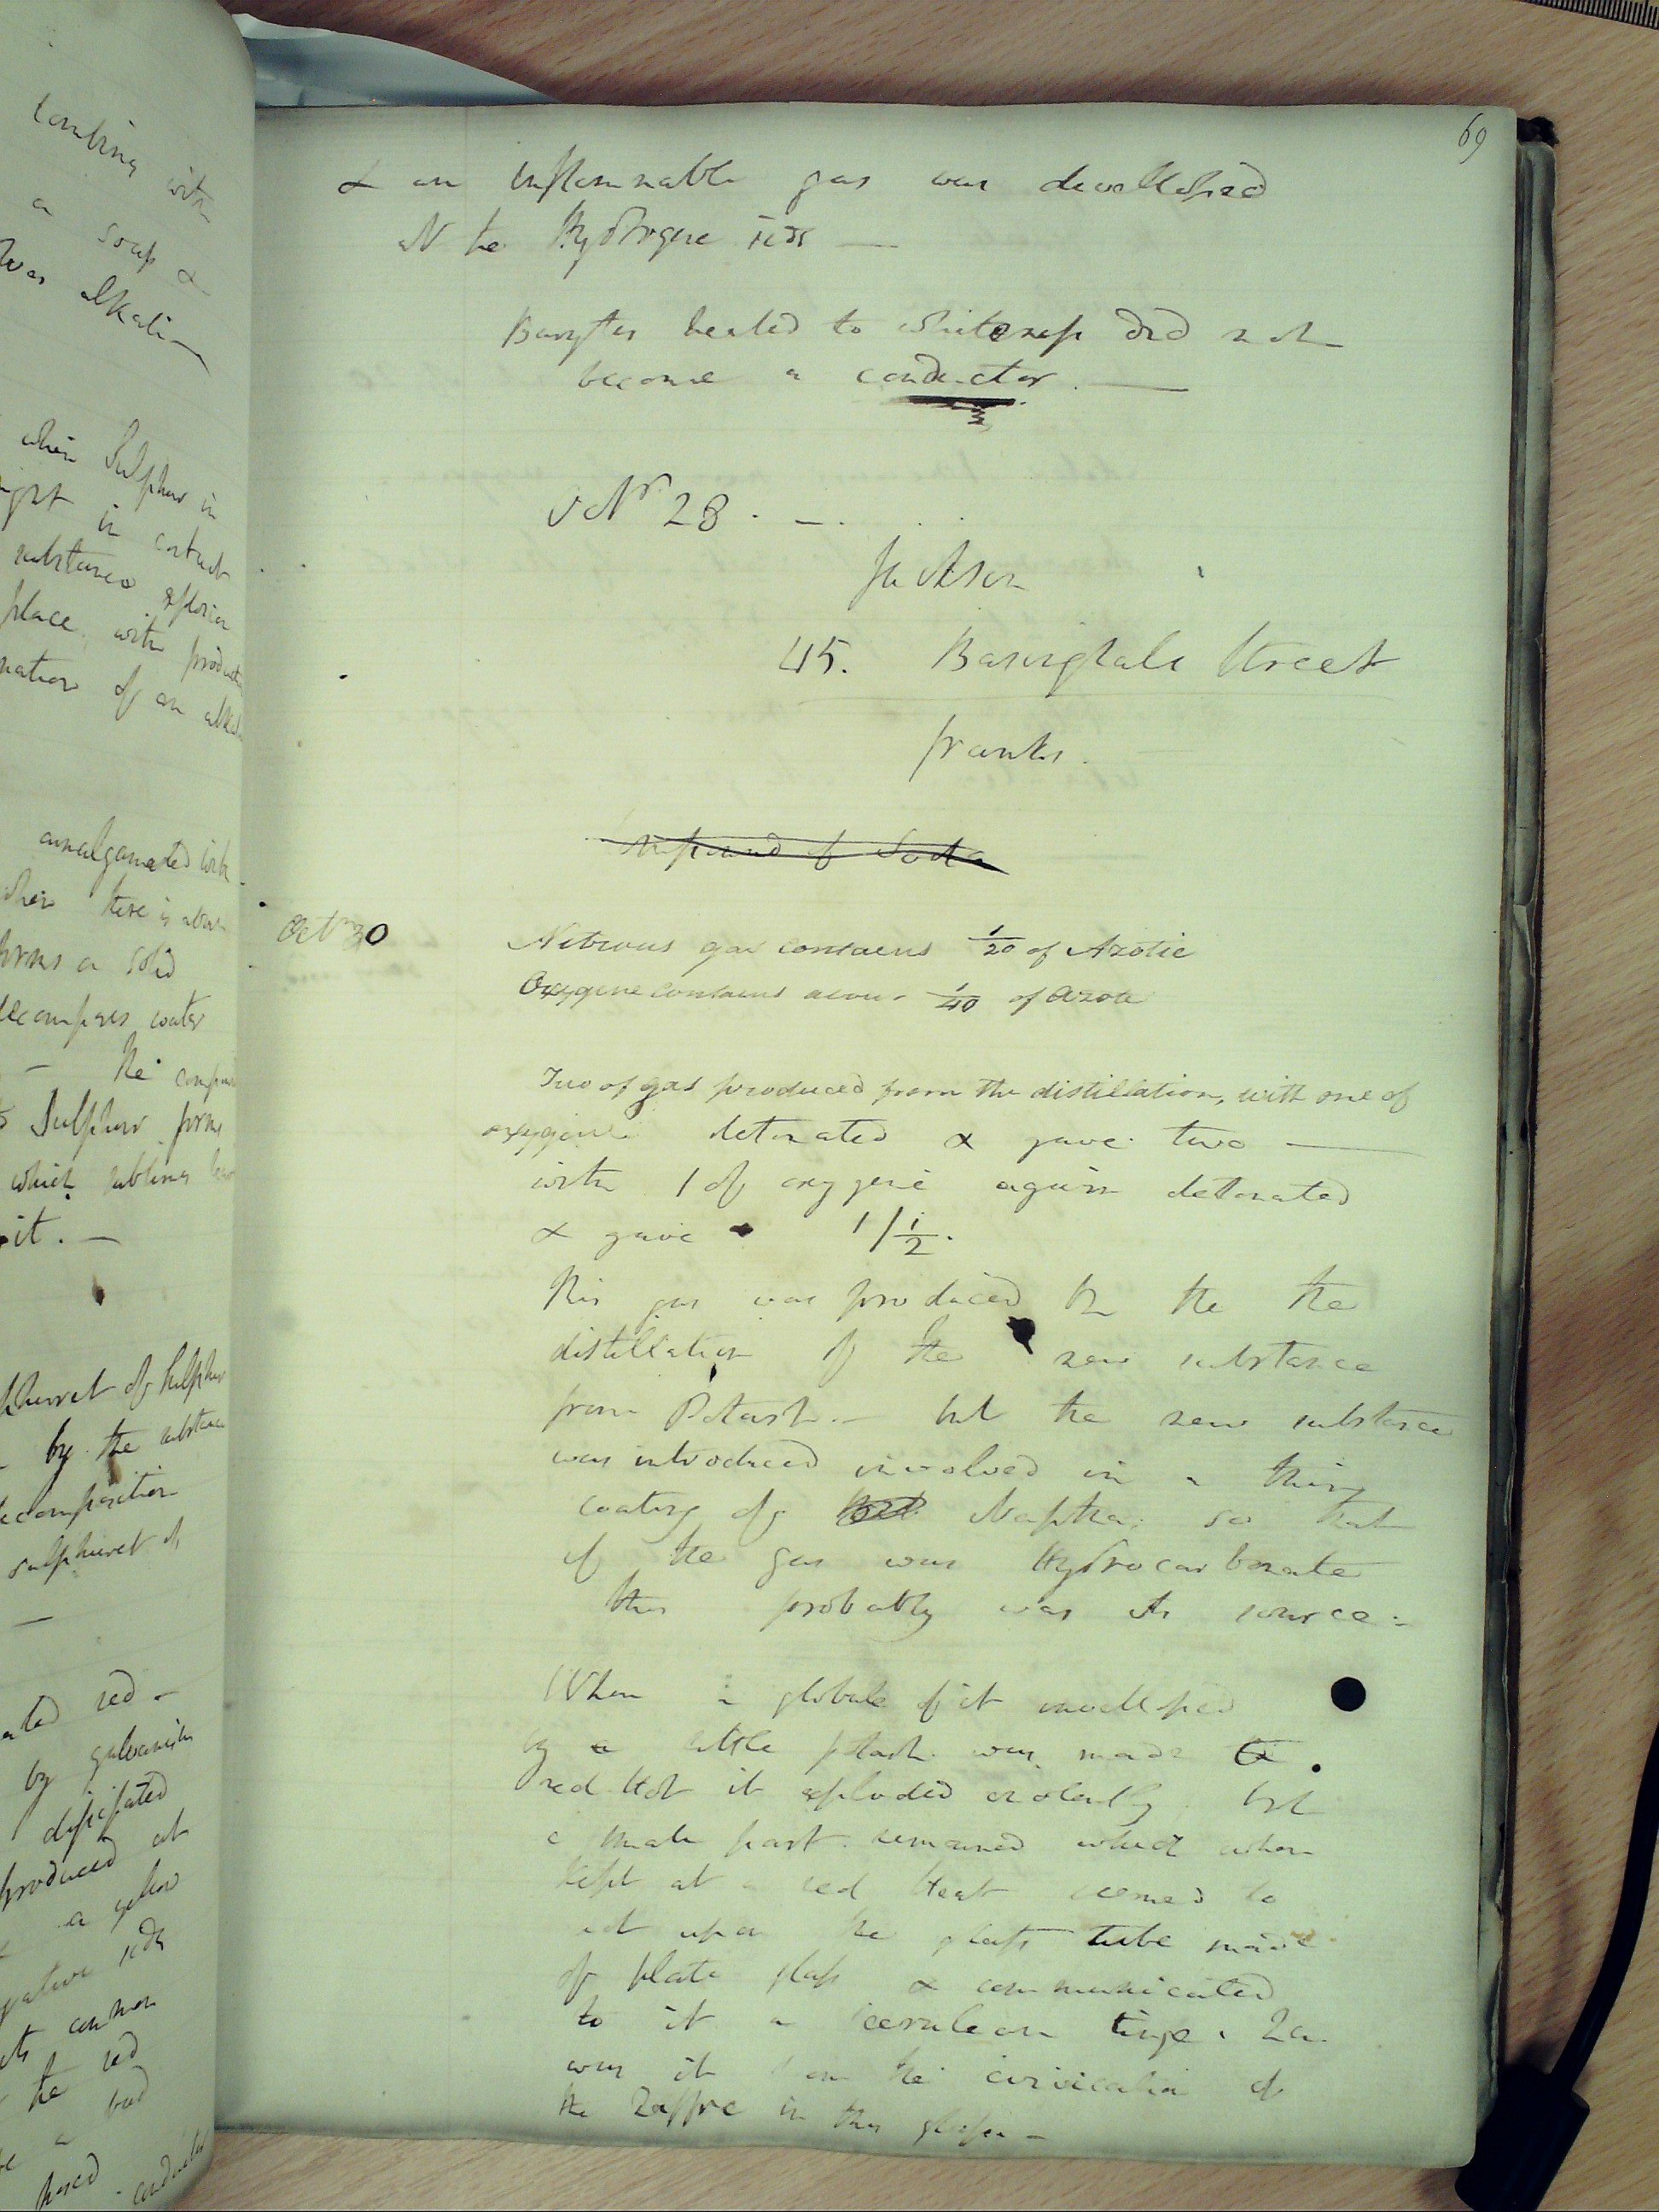 combing with
a soap &
was alkaline
when Sulphur in
in contact
substance explosion
place with production
nation of an alkal
amalgamated with
when there is above
forms a solid
decomposes water
— The compound
Sulphur forms
which sublimes
it. —
phuret of sulphur
by the substance
decomposition
sulphuret of
—
red —
by galvanism
dissipated
produced at
a yellow
gative side
its common
the red
a
69
& an inflammable gas was devellosped
at the Hydrogene side —
Barytes heated to whiteness did not
become a conductor. —
Nr 28 . — .
Jackson
45. Basinghall Street
Franks.
of Soda
Octr 30
Nitrous gas contains 1/20 of Azotic
Oxygene contains about 1/40 of azote
Two of gas produced from the distillation, with one of
oxygene detonated & gave two —
with 1 of oxygene again detonated
& gave 1 / 1/2.
This gas was produced by the the
distillation of the new substance
from Potash. — but the new substance
was introduced involved in a thin
coating of Naptha; so that
if the gas was Hydrocarbonate
this probably was its source —
When a globule of it envellsped
by a little potash was made
red hot it exploded violently but
a small part remained which when
kept at a red Heat seemed to
act upon the glass tube made
of plate glass & communicated
to it a cerulean tinge.
was it from the revivication of
the Zaffre in this glass —